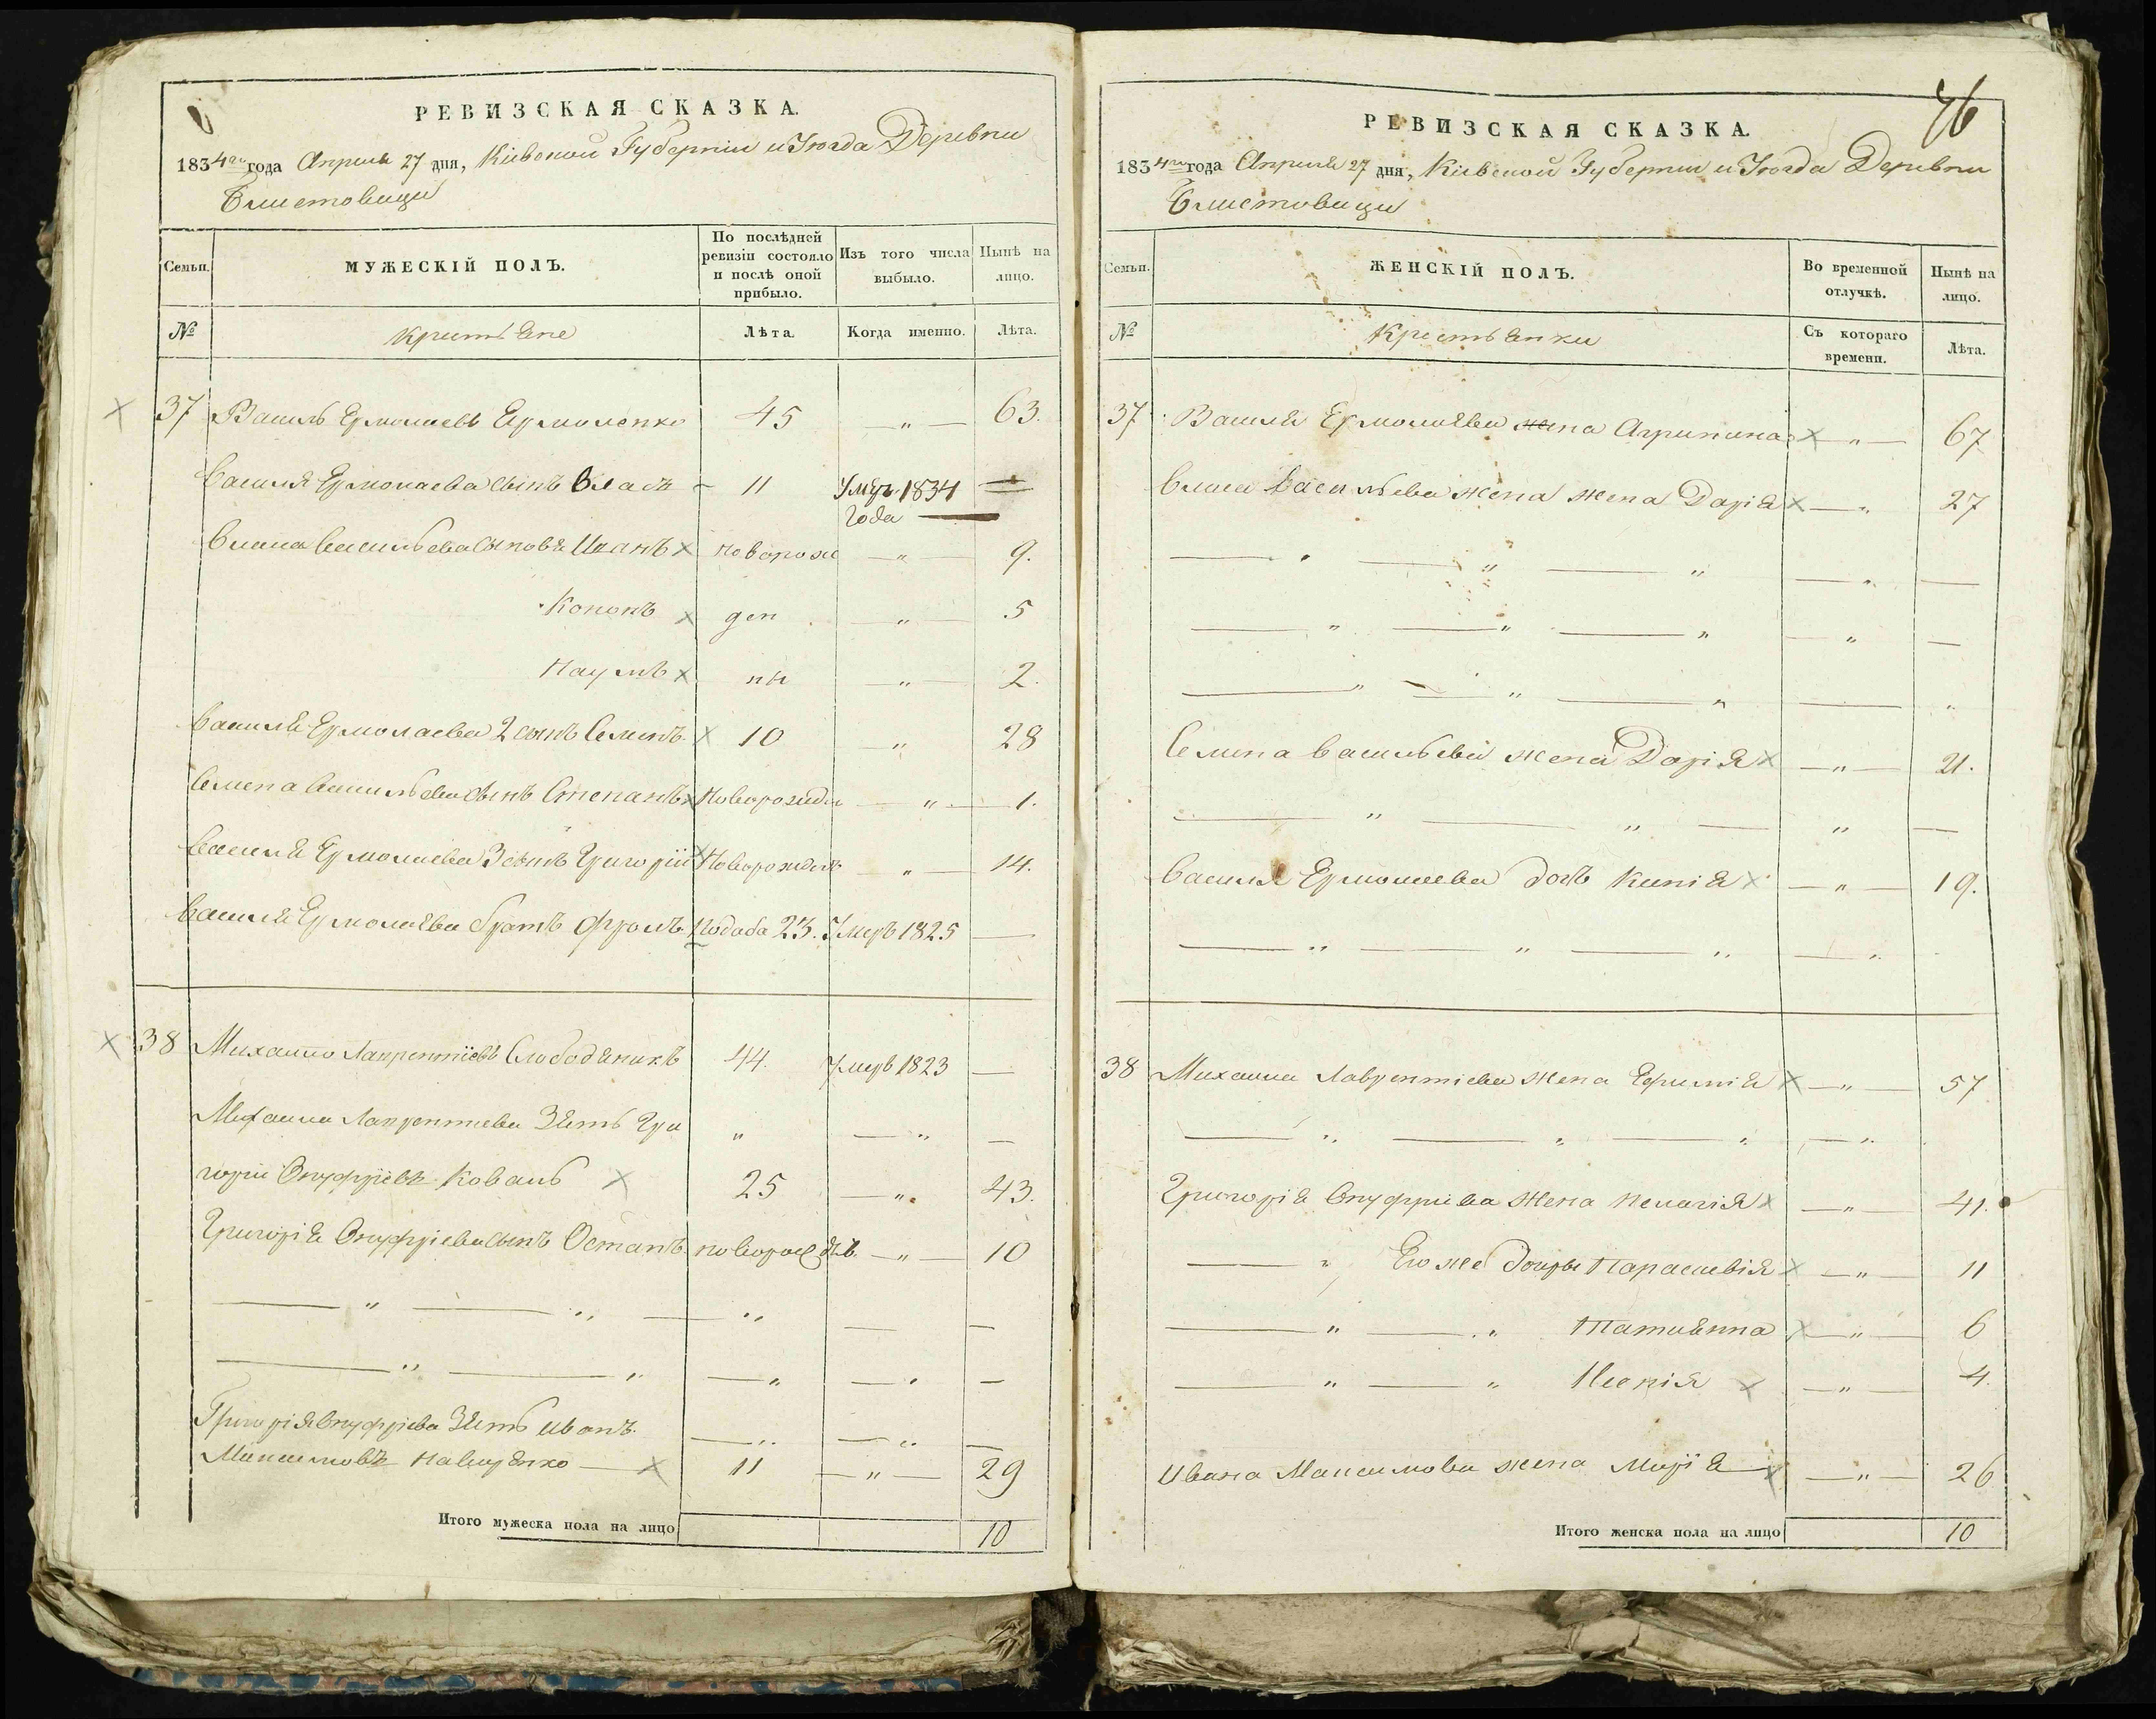 РЕВИЗСКАЯ СКАЗКА.
1834го года Апреля 27 дня, Кіевской Губерніи и Уезда Деревни
Блиставици
Семьи. МУЖЕСКІЙ ПОЛЪ. По послѣдней ревизіи состояло и послѣ оной прибыло. Изъ того числа выбыло. Нынѣ на лицо.
№ Крестьяне Лѣта. Когда именно. Лѣта.
37 Василь Ермолаевъ Ермоленко 45 — „ — 63.
Василя Ермолаева сынъ Власъ — 11 Умеръ 1834 года —
Власа Васильева сыновья Иванъ новорож — „ — 9.
Кононъ ден — „ — 5
Наумъ ны — „ — 2.
Василя Ермолаева 2 сынъ Семенъ 10 „ 28
Семена Васильева сынъ Степанъ Новорожден — „ — 1.
Василя Ермолаева 3 сынъ Григорій Новорожден — „ — 14.
Василя Ермолаева братъ Фролъ 23. Умеръ 1825 —
38 Михайло Лаврентіевъ Слободяникъ 44. Умеръ 1823 —
Михаила Лаврентиева Зять Гри „ — „ —
горій Онуфріевъ Коваль 25 — „ 43.
Григорія Онуфріева сынъ Остапъ — „ — 10
— „ — „ — „ — —
— „ — „ — „ — „ —
Григорія Онуфріева Зять Иванъ — „ — „ —
Максимовъ — 11 — „ — 29
Итого мужеска пола на лицо 10
76
РЕВИЗСКАЯ СКАЗКА.
1834го года Апреля 27 дня, Кіевской Губерніи и Уезда Деревни
Блиставици
Семьи. ЖЕНСКІЙ ПОЛЪ. Во временной отлучкѣ. Нынѣ на лицо.
№ Крестьянки Съ котораго времени. Лѣта.
37 Василя Ермолаева жена Агрипина — „ — 67
Власа Васильева жена жена Дарія — „ 27
— „ — „ — „ — „ —
— „ — „ — „ — „ —
— „ — „ — „ — „
Семена Васильева жена Дарія — „ — 21.
— „ — „ — „ —
Василя Ермолаева дочь — „ — 19.
— „ — „ — „ — „
38 Михаила Лаврентіева жена Ефимія — „ — 57
— „ — „ — „ — „
Григорія Онуфриева жена Пелагія — „ — 41.
— „ Его же дочери Параскевія — „ — 11
— „ — „ Татиянна — „ — 6
— „ — „ — „ — 4.
Ивана Максимова жена Марія — „ — 26
Итого женска пола на лицо 10